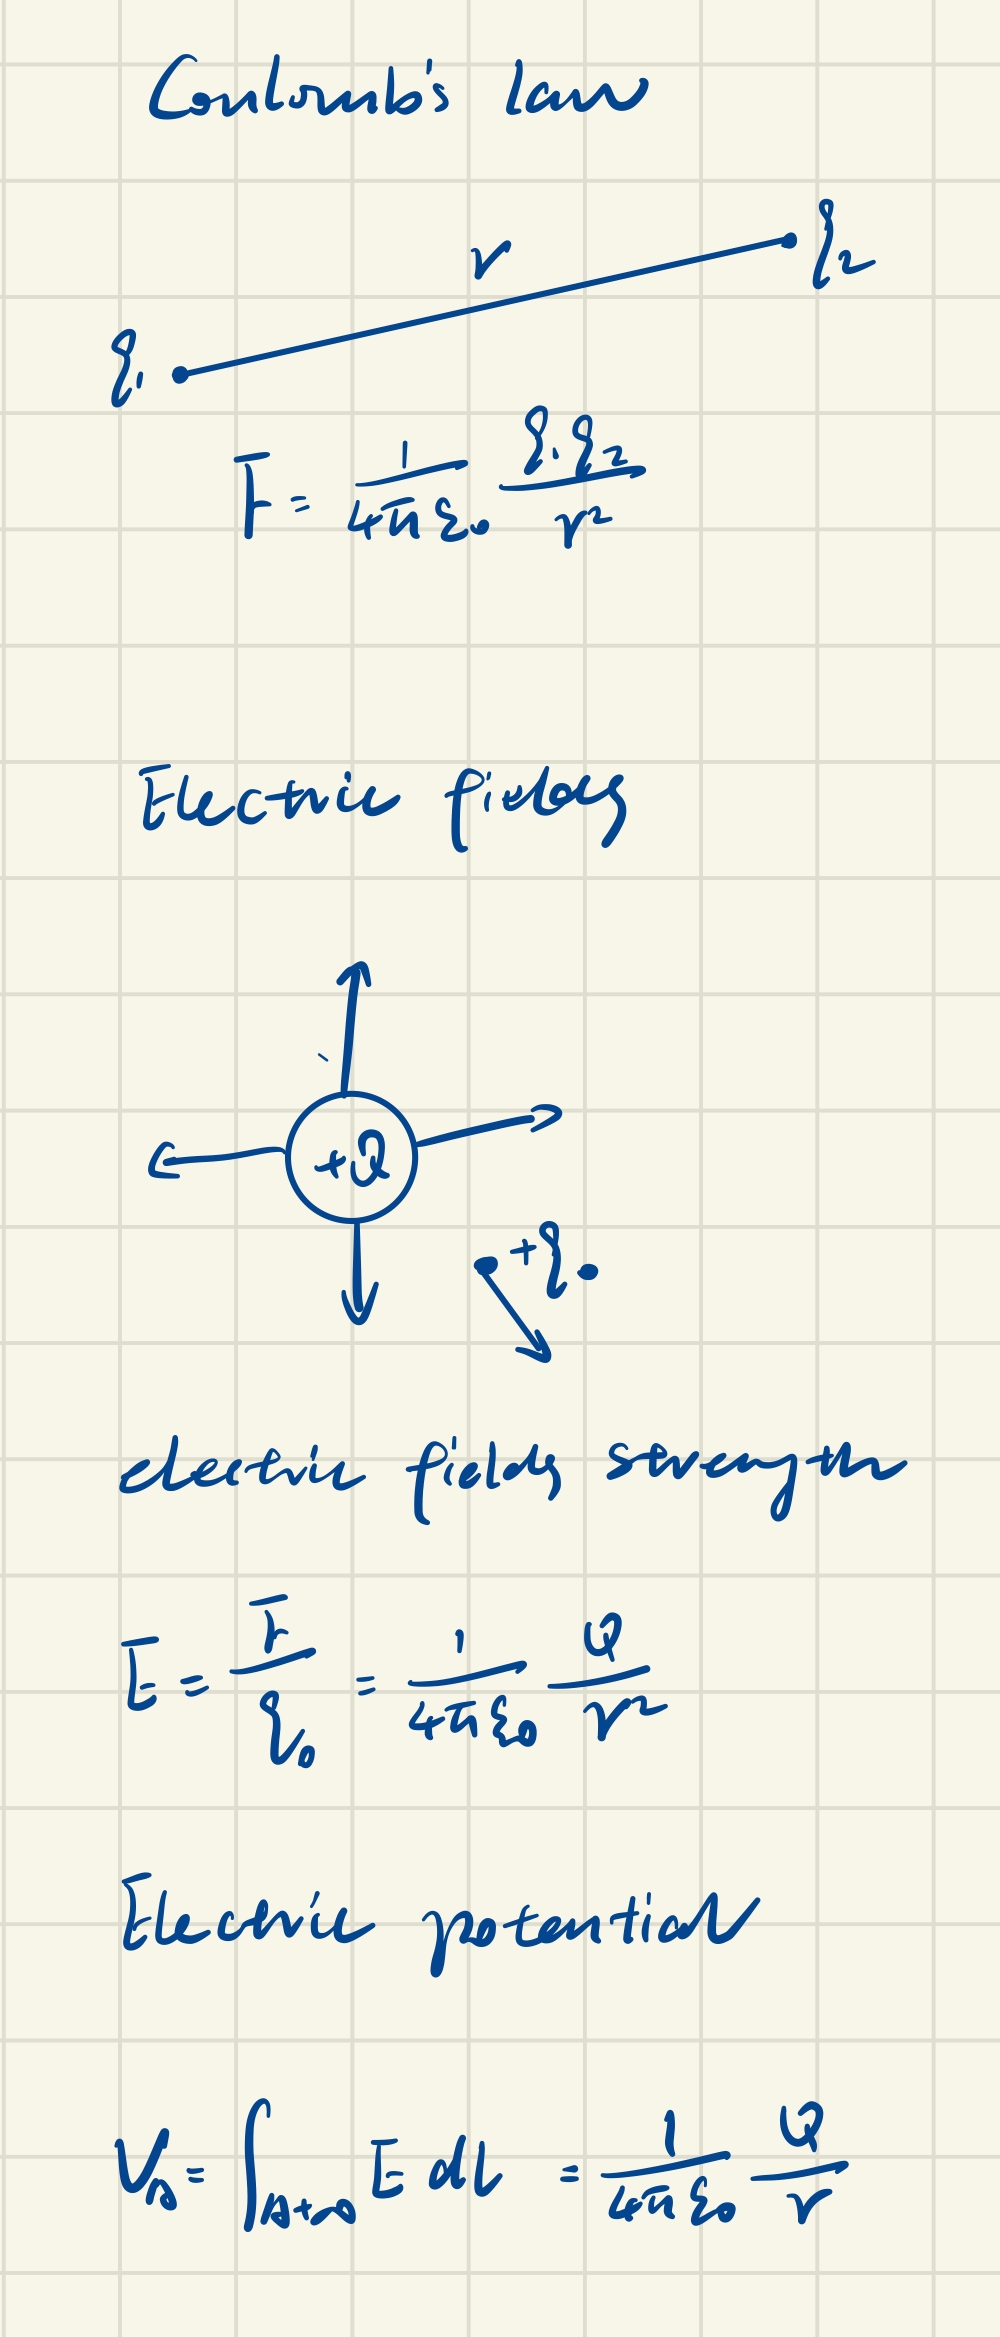 Coulomb's law
r
q₂
q₁
F = 1/(4πε₀) q₁q₂/r²
Electric fields
+Q
+q₀
electric fields strength
E = F/q₀ = 1/(4πε₀) Q/r²
Electric potential
V_A = ∫_{A→∞} E dl = 1/(4πε₀) Q/r